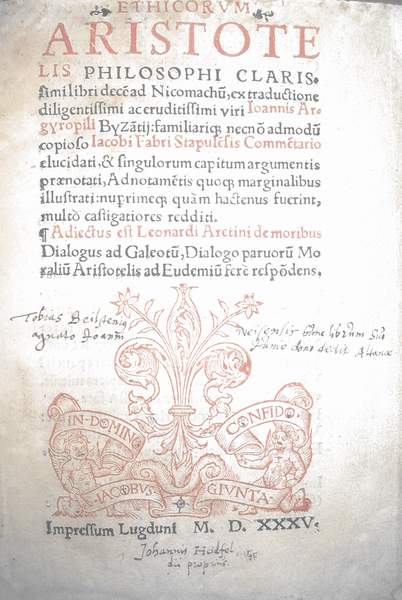 ETHICORVM
ARISTOTE
LIS PHILOSOPHI CLARIS-
simi libri decē ad Nicomachū, ex traductione
diligentissimi ac eruditissimi viri Ioannis Ar-
gyropili Byzātij: familiariq; necnō admodū
copioso Iacobi Fabri Stapulēsis Commētario
elucidati, & singulorum capitum argumentis
prænotati, Adnotamētis quoq; marginalibus
illustrati: nuprimeq; quàm hactenus fuerint,
multò castigatiores redditi.
¶ Adiectus est Leonardi Aretini de moribus
Dialogus ad Galeotū, Dialogo paruorū Mo
raliū Aristotelis ad Eudemiū ferè respōdens.
Tobias
agnato Ioanni
librum
dono dedit
IN DOMINO
CONFIDO.
IACOBVS
GIVNTA
Impressum Lugduni M. D. XXXV.
Johannis